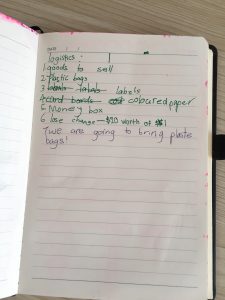 DATE / /
logistics:
1 goods to sell
2 Plastic bags
3 labels labels labels
4 card boards coloured paper
5 Money box
6 lose change—$10 worth of $1
7 we are going to bring plastic
bags!